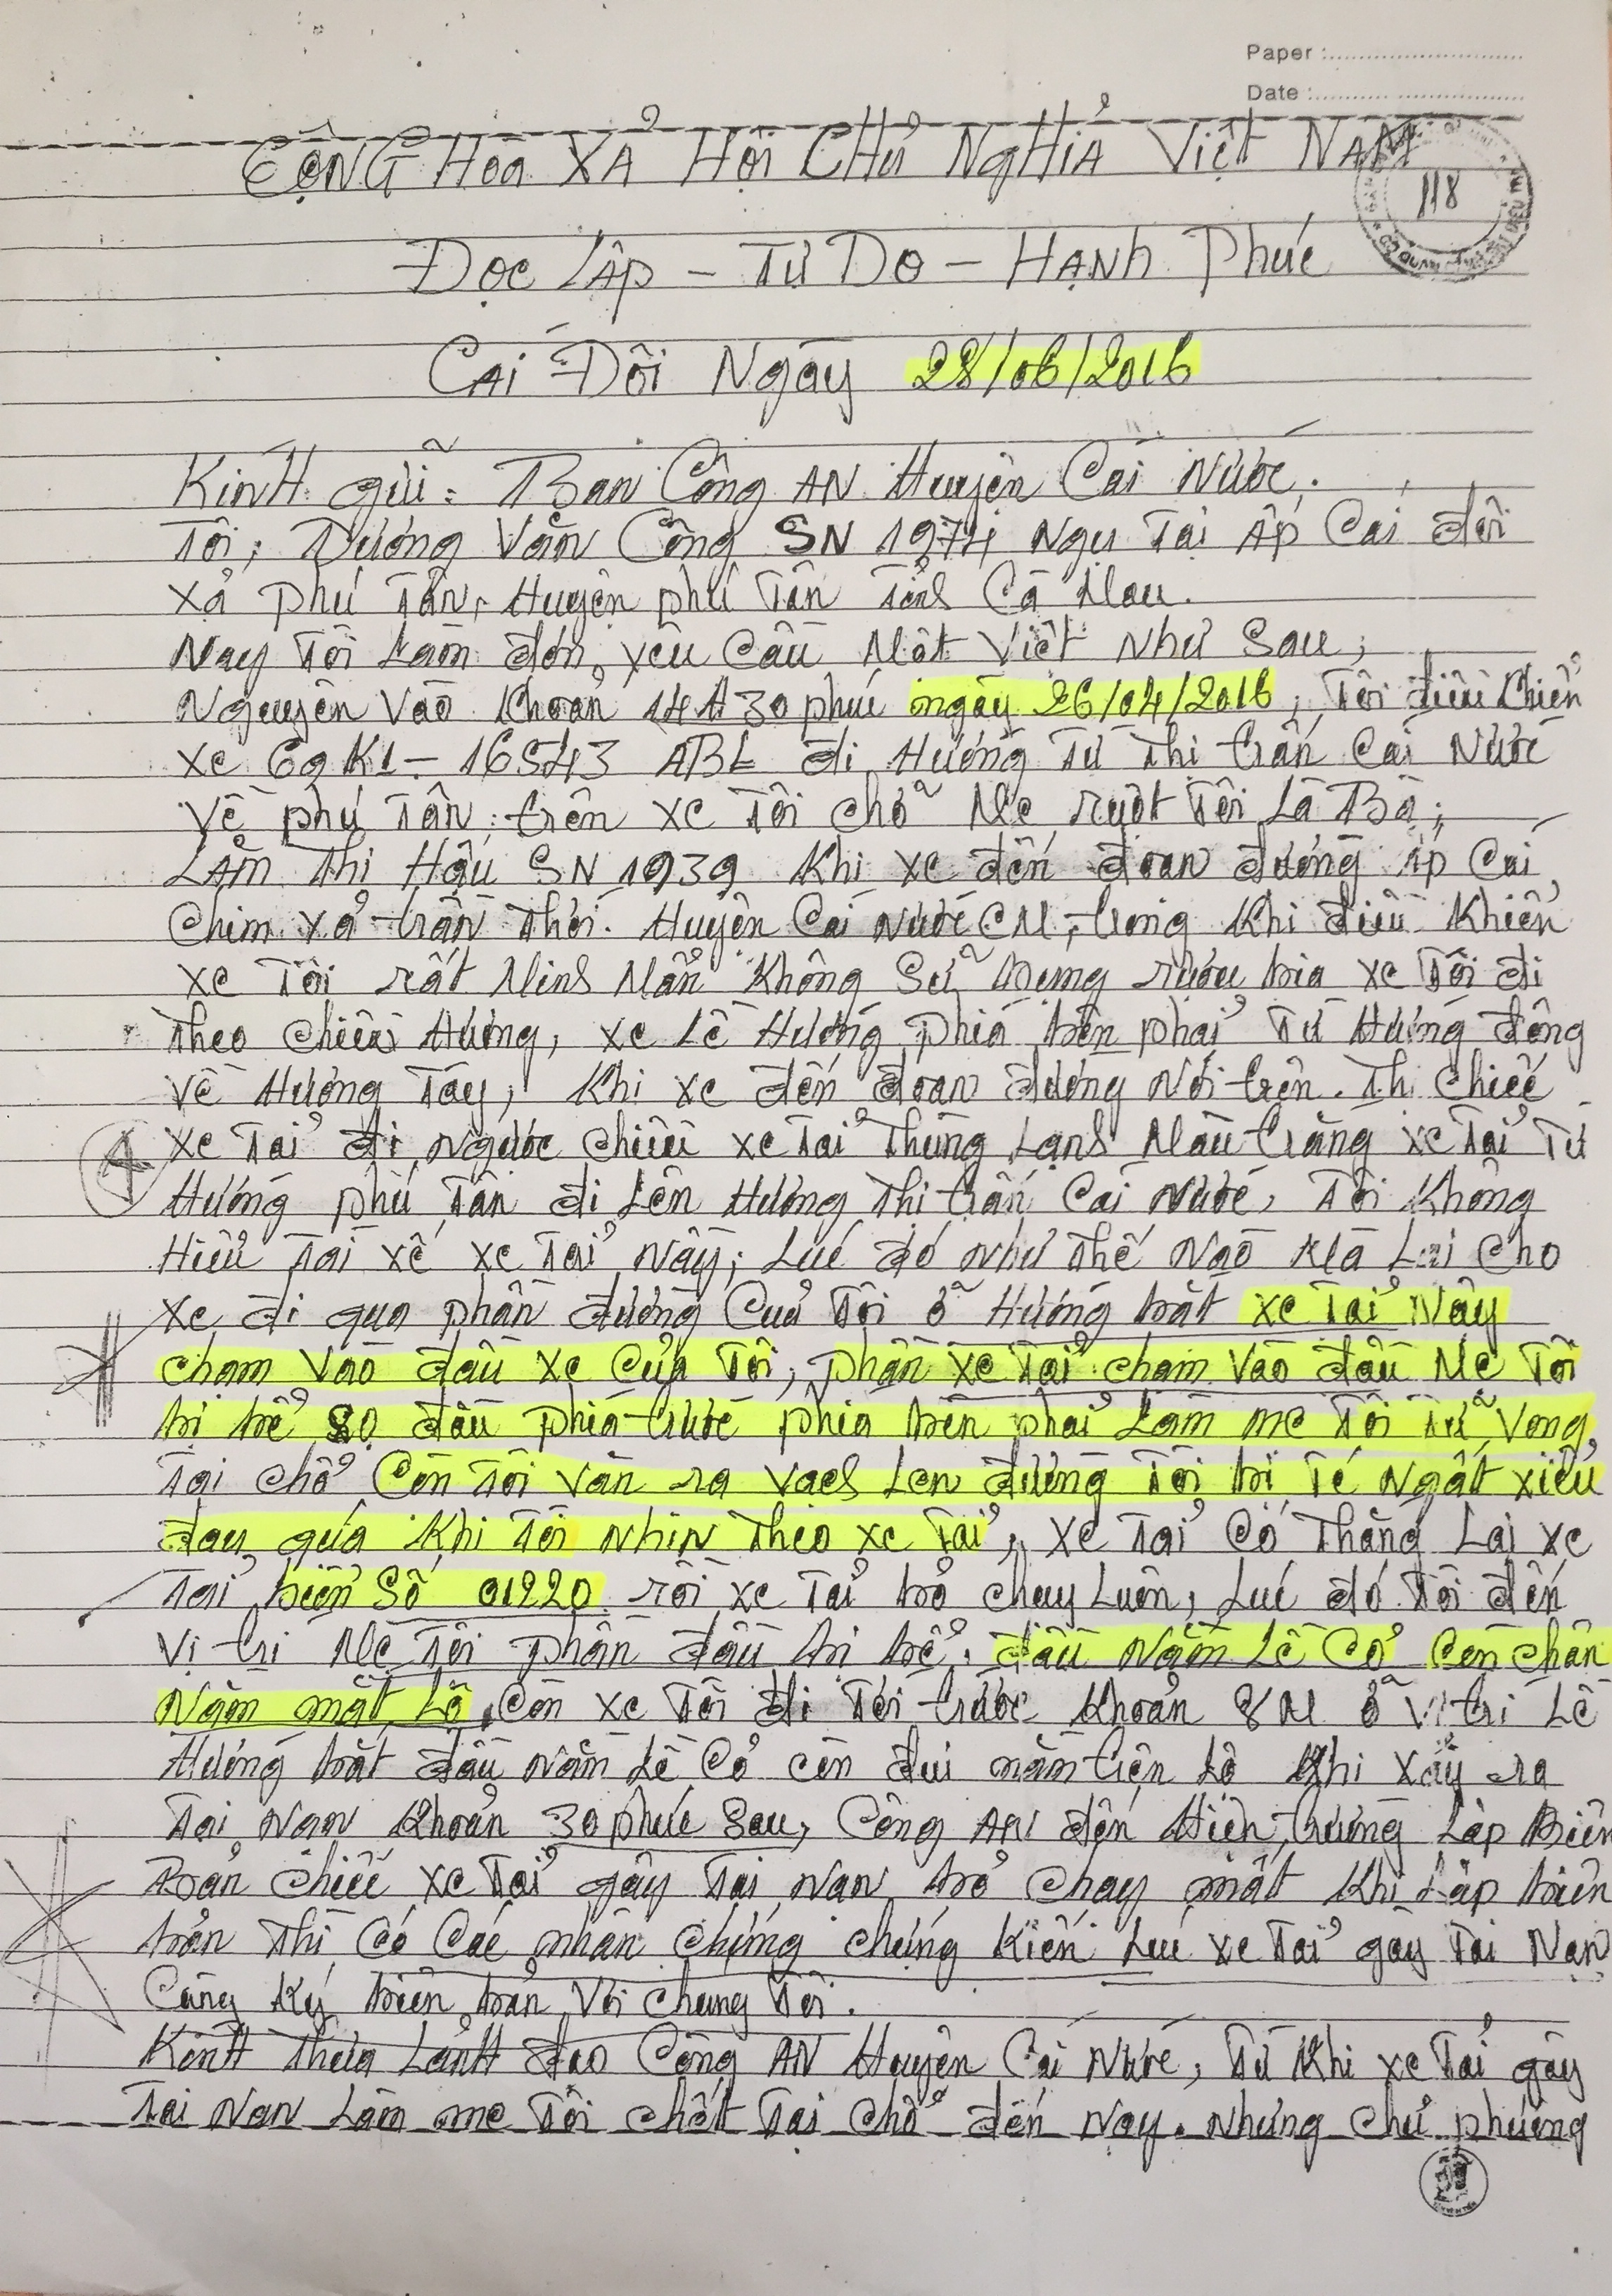 Paper :
Date :
CỘNG HÒA XẢ HỘI CHỦ NGHIẢ Việt NAM
118
ĐỌC LẬP - TỰ DO - HẠNH Phúc
CÁI ĐÔI Ngày 28/06/2016
KinH gữi: Ban Công AN Huyện Cái Nước.
Tôi; Dương Văn Công SN 1974 Ngụ Tại Ấp Cái đôi
xả phú Tân, Huyện phú Tân Tỉnh Cà Mau.
Nay Tôi Làm đơn, yêu Cầu Một Việt Như Sau;
Nguyên Vào Khoản 14H30 phúc ngày 26/04/2016, Tôi điều Khiển
xe 69K1-16543 ABL đi Hướng Từ Thị trấn Cái Nước
Về phú Tân, trên xe Tôi chở Mẹ ruột Tôi Là Bà;
LÂM Thị Hậu SN 1939 Khi xe đến đoạn đường ấp Cái
Chim xả trần Thới. Huyện Cái Nước CM, trong Khi điều Khiển
xe Tôi rất Minh Mẩn Không Sữ Dụng rượu bia xe Tôi đi
Theo chiều Hướng, xe Lề Hướng phía bên phải Từ Hướng đông
Về Hướng Tây, Khi xe đến đoạn đường Nói trên. Thì Chiếc
xe Tải đi Ngược chiều xe Tải Thùng Lạnh Màu trắng xe Tải Từ
Hướng phú Tân đi Lên Hướng Thị trấn Cái Nước, Tôi Không
Hiểu Tài xế xe Tải Nầy; Lúc đó Như Thế Nào Mà Lại Cho
xe đi qua phần đường Của Tôi ỡ Hướng bắt xe Tải Nầy
chạm Vào đầu xe Của Tôi, phần xe Tải chạm Vào đầu Mẹ Tôi
bị bể sọ đầu phía trước phía bên phải Làm mẹ Tôi Tữ Vong
Tại chổ Còn Tôi Văn ra Vạch Len đường Tôi bị Té Ngất xiểu
đau quá Khi Tôi Nhìn Theo xe Tải, xe Tải Có Thắng Lại xe
Tải biển Số 01220 rồi xe Tải bỏ chạy Luôn, Lúc đó Tôi đến
Vị trí Mẹ Tôi phần đầu bị bể. đầu Nằm Lề Cỏ Còn chân
Nằm mặt Lộ, Còn xe Tôi đi Tới trước Khoản 8M ỡ Vị trí Lề
Hướng bắt đầu nằm Lề Cỏ còn đui nằm trên Lộ Khi xảy ra
Tai Nạn Khoản 30 phúc Sau, Công AN đến Hiện trường Lập Biên
Bản chiếc xe Tải gây Tai Nạn bỏ chạy mất Khi Lập biên
bản Thì Có Các nhân chứng chứng Kiến Lúc xe Tải gây Tai Nạn
Cùng Ký biên bản Với chúng Tôi.
KinH Thưa LảnH đạo Công AN Huyện Cái Nước, Từ Khi xe Tải gây
Tai Nạn Làm mẹ Tôi chết Tại Chổ đến Nay. Nhưng chủ phương